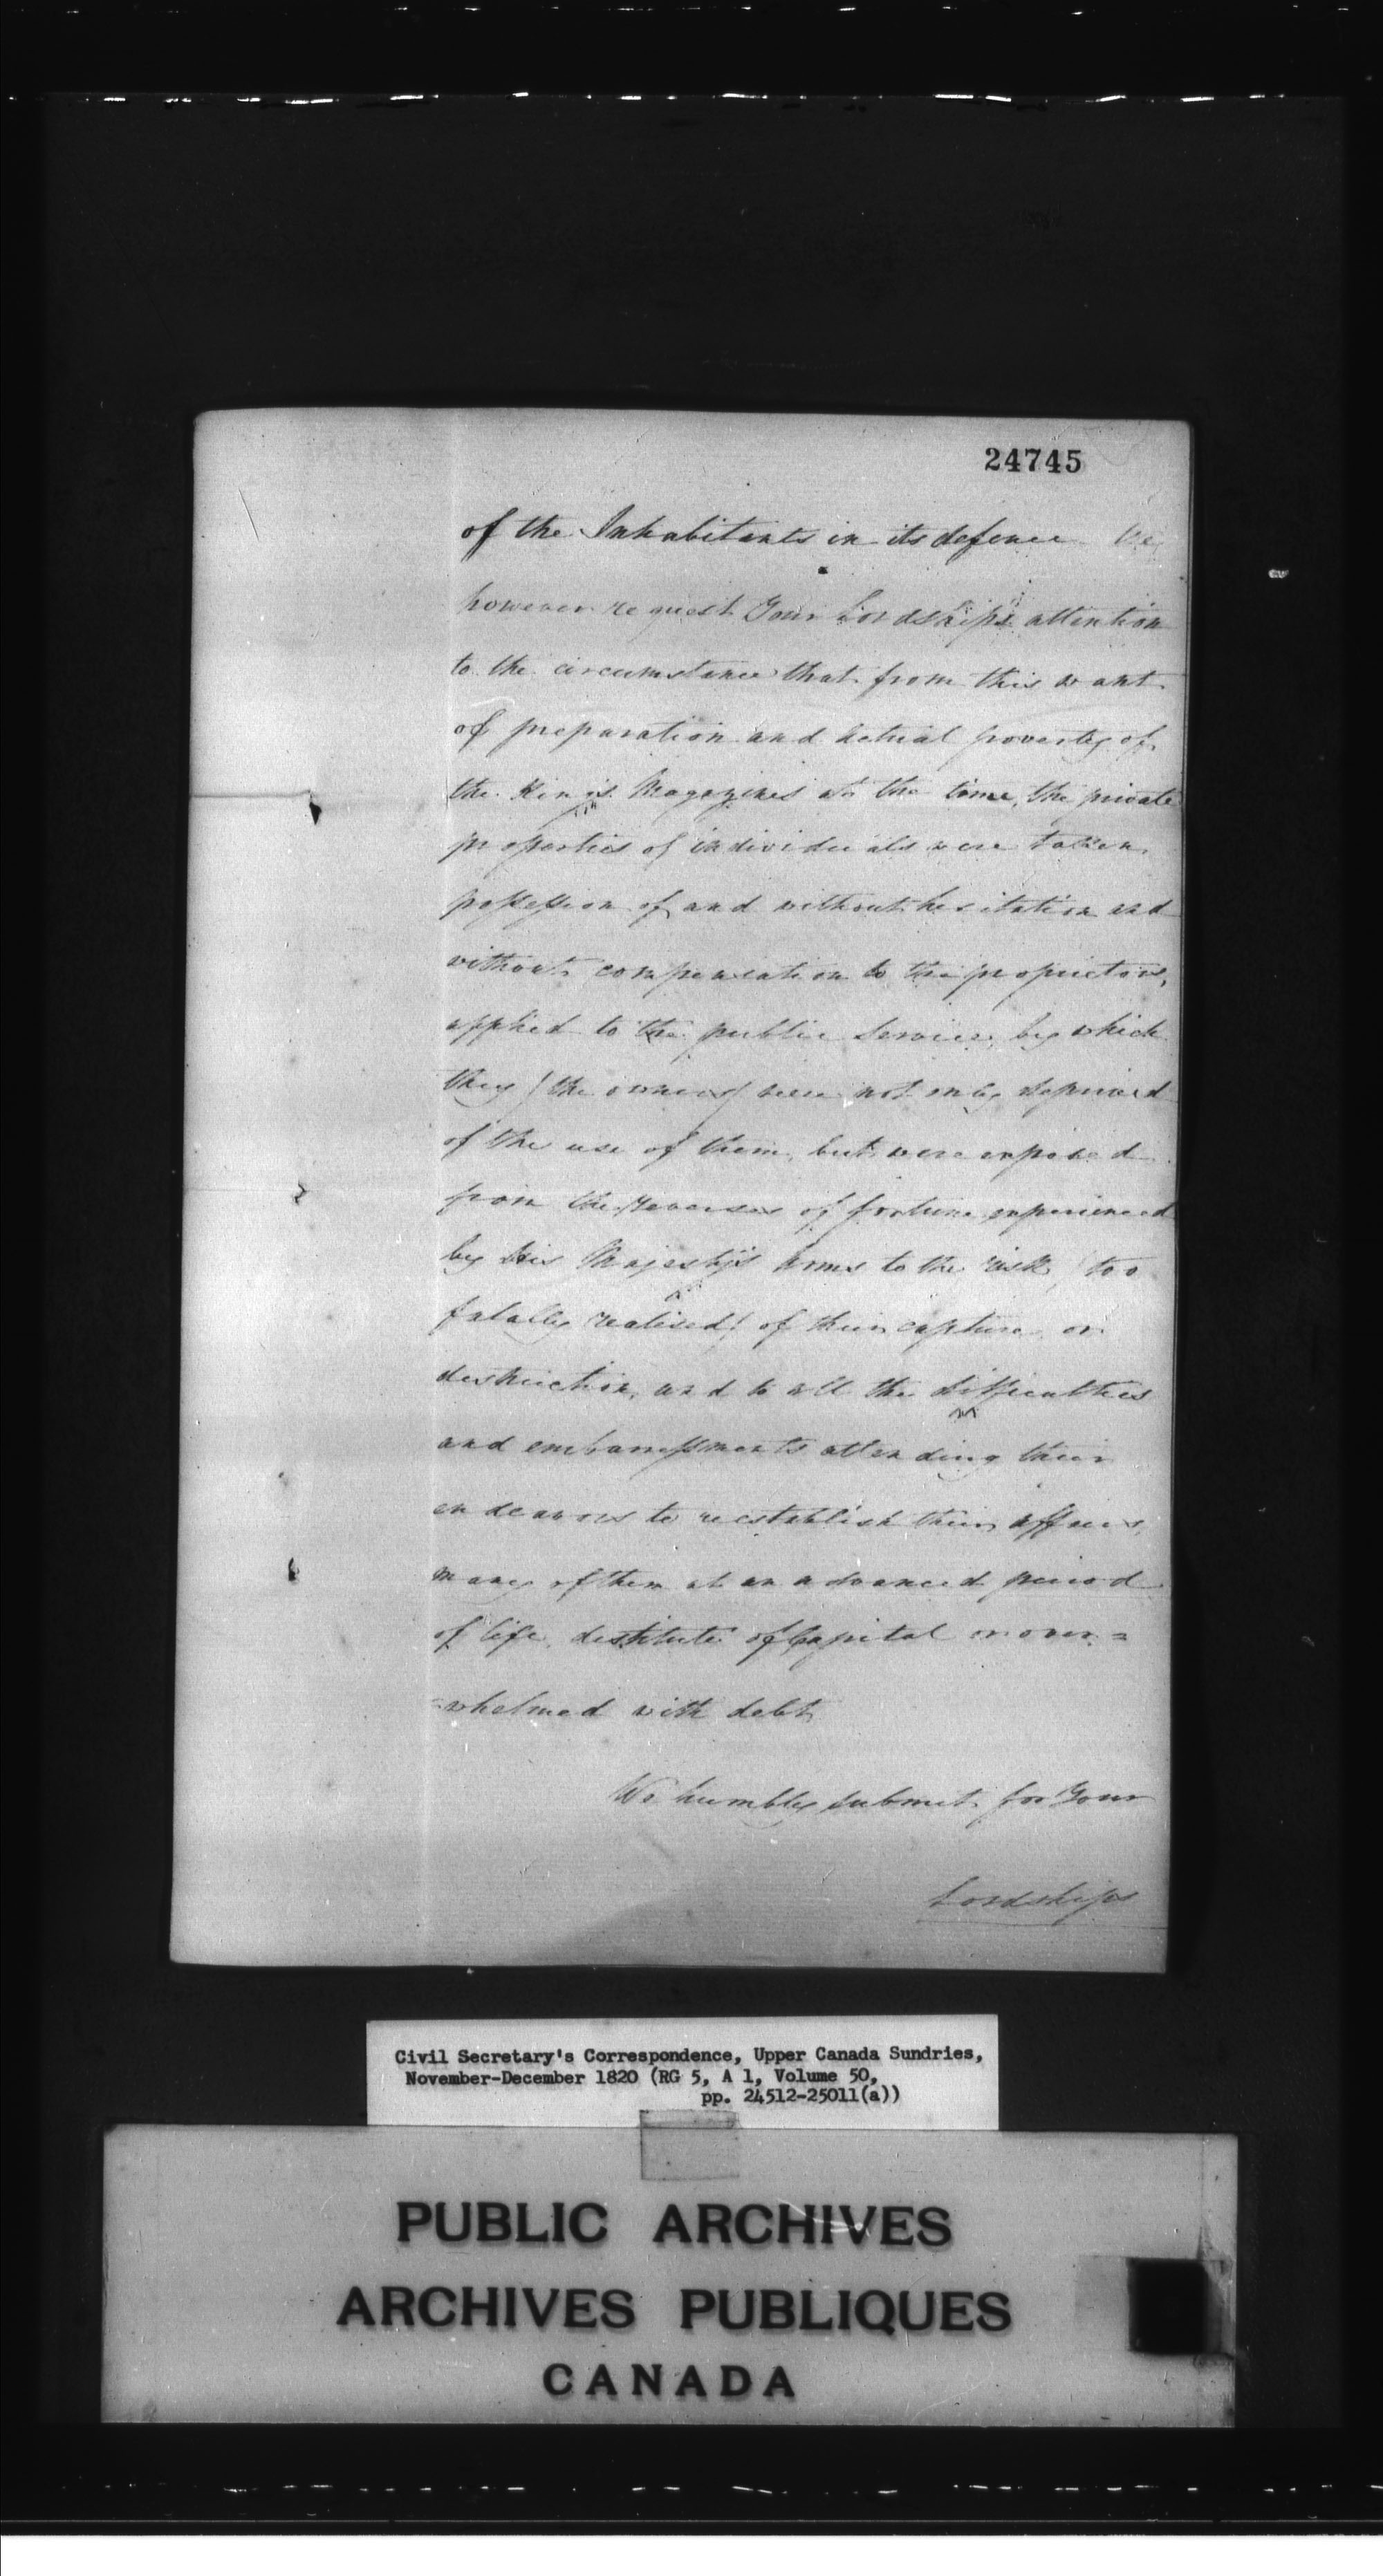 24745
of the Inhabitants in its defence We
however request Your Lordships attention
to the circumstance that from this want
of preparation and actual poverty of
the King's Magazines at the time, the private
properties of individuals were taken
possession of and without hesitation and
without compensation to the proprietors,
applied to the public Service, by which
they (the owners) were not only deprived
of the use of them, but were exposed
from the reverses of fortune experienced
by His Majesty's Arms to the risk (too
fatally realised) of their capture or
destruction, and to all the difficulties
and embarrassments attending their
endeavors to reestablish their affairs,
many of them at an advanced period
of life, destitute of Capital or over=
=whelmed with debt
We humbly submit for Your
Lordships
Civil Secretary's Correspondence, Upper Canada Sundries,
November-December 1820 (RG 5, A 1, Volume 50,
pp. 24512-25011(a))
PUBLIC ARCHIVES
ARCHIVES PUBLIQUES
CANADA